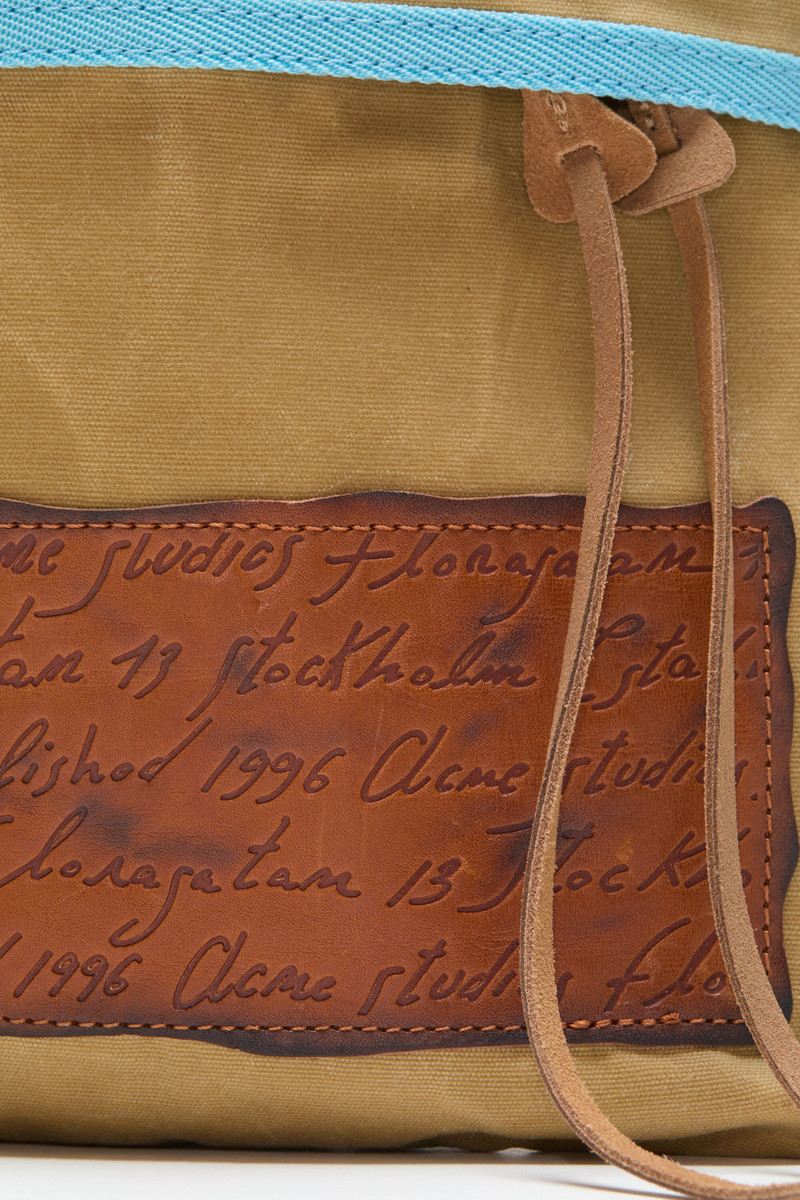 me studios Floragatan
tan 13 Stockholm Esta
lished 1996 Acme studios
Floragatan 13 Stockho
1996 Acme studios Flo